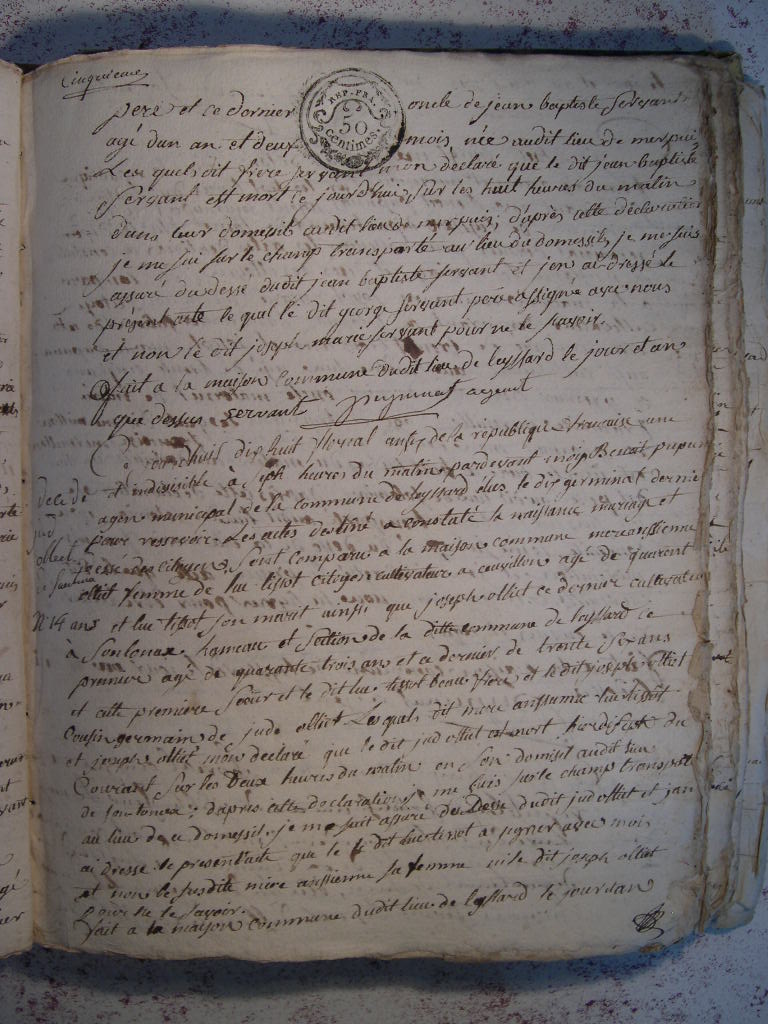 Cinquieme
REP. FRA.
50
Centimes
pere et ce dernier oncle de jean baptiste servant
agé dun an et deux mois, née audit lieu de merpuis
Les quels dit frere servant mon declaré que le dit jean baptiste
Servant est mort ce jourdhui, sur les huit heures du matin
dans leur domessile audit lieu de merpuis; d'après cette déclaration
je me sui sur le champ transporté au lieu du domessile, je me suis
assuré du desse dudit jean baptiste servant et jen ai dressé le
présent acte le qual le dit george servant pere assigné avec nous
et non le dit joseph marie servant pour ne le savoir.
fait a la maison Commune dudit lieu de leyssard le jour et an
que dessus servant agent
dix huit floreal de la république francaise une
et indivisible à sept heures du matin pardevant moi Benoit
agent municipal de la commune de leyssard élus le dix germinal dernie
pour ressevoir Les actes destiné a constaté la naissance mariage et
desse des citoyens, Sest comparue a la maison commune
olliet femme de luc tissot citoyen cultivateur a agé de quarant
decé de
jud
olliet
N° 14
ans et luc tissot son marit ainsi que joseph olliet ce dernier cultivateur
à Sonlonax hameau et section de la ditte commune de leyssard ce
premier agé de quarante trois ans et ce dernier de trente ans
et cette premiere soeur et le dit luc tissot beau frere et le dit joseph olliet
Cousin germain de jude olliet Les quals dit luc tissot
et joseph olliet mon declaré que le dit jud olliet est mort hier du
Courant sur les deux heures du matin en son domisil audit lieu
de sonlonax; daprès cette declaration, je me suis sur le champ transporté
au lieu de ce domessil, je me suit assuré du desse dudit jud olliet et jan
ai dressé le present acte que le dit luc tissot a signer avec moi
et non le susdite sa femme ni le dit joseph olliet
pour ne le savoir.
fait a la maison Commune dudit lieu de leyssard le jour dan